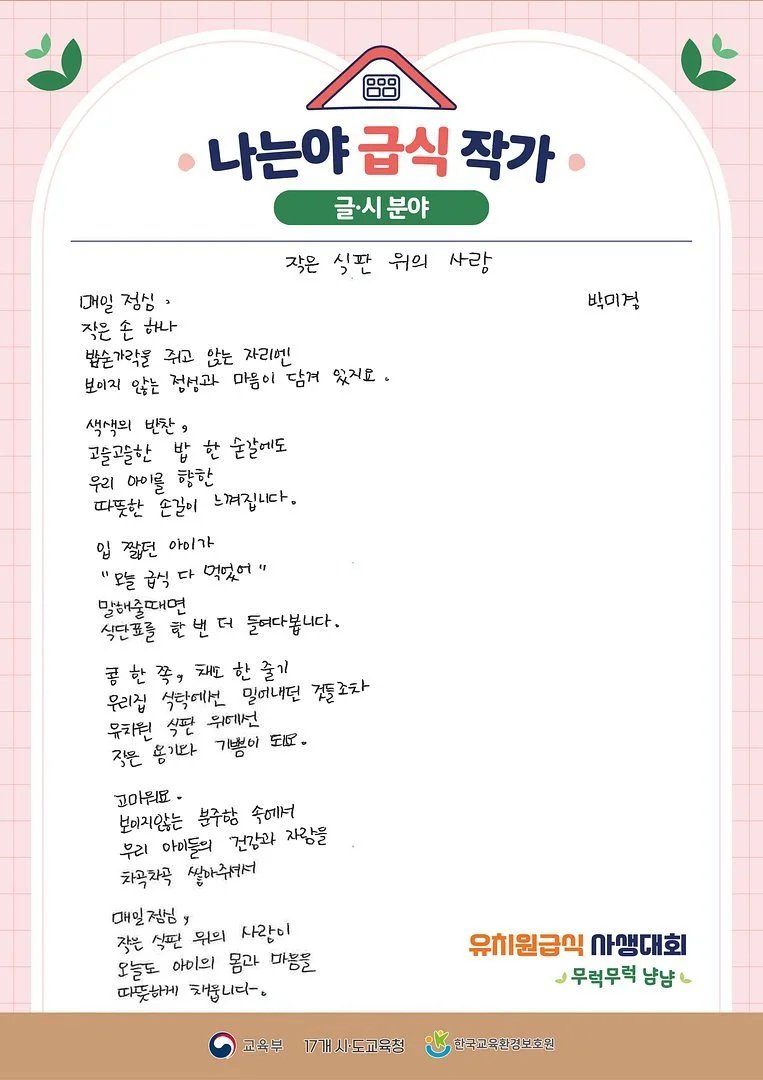 나는야 급식 작가
글·시 분야
작은 식판 위의 사랑
박미경
매일 점심,
작은 손 하나
밥숟가락을 쥐고 앉는 자리엔
보이지 않는 정성과 마음이 담겨 있지요.
색색의 반찬,
고슬고슬한 밥 한 숟갈에도
우리 아이를 향한
따뜻한 손길이 느껴집니다.
입 짧던 아이가
"오늘 급식 다 먹었어"
말해줄때면
식단표를 한 번 더 들여다봅니다.
콩 한 쪽, 채소 한 줄기
우리집 식탁에선 밀어내던 것들조차
유치원 식판 위에선
작은 용기와 기쁨이 되요.
고마워요.
보이지않는 분주함 속에서
우리 아이들의 건강과 자람을
차곡차곡 쌓아주셔서
매일점심,
작은 식판 위의 사랑이
오늘도 아이의 몸과 마음을
따뜻하게 채웁니다.
유치원급식 사생대회
무럭무럭 냠냠
교육부 17개 시·도교육청 한국교육환경보호원